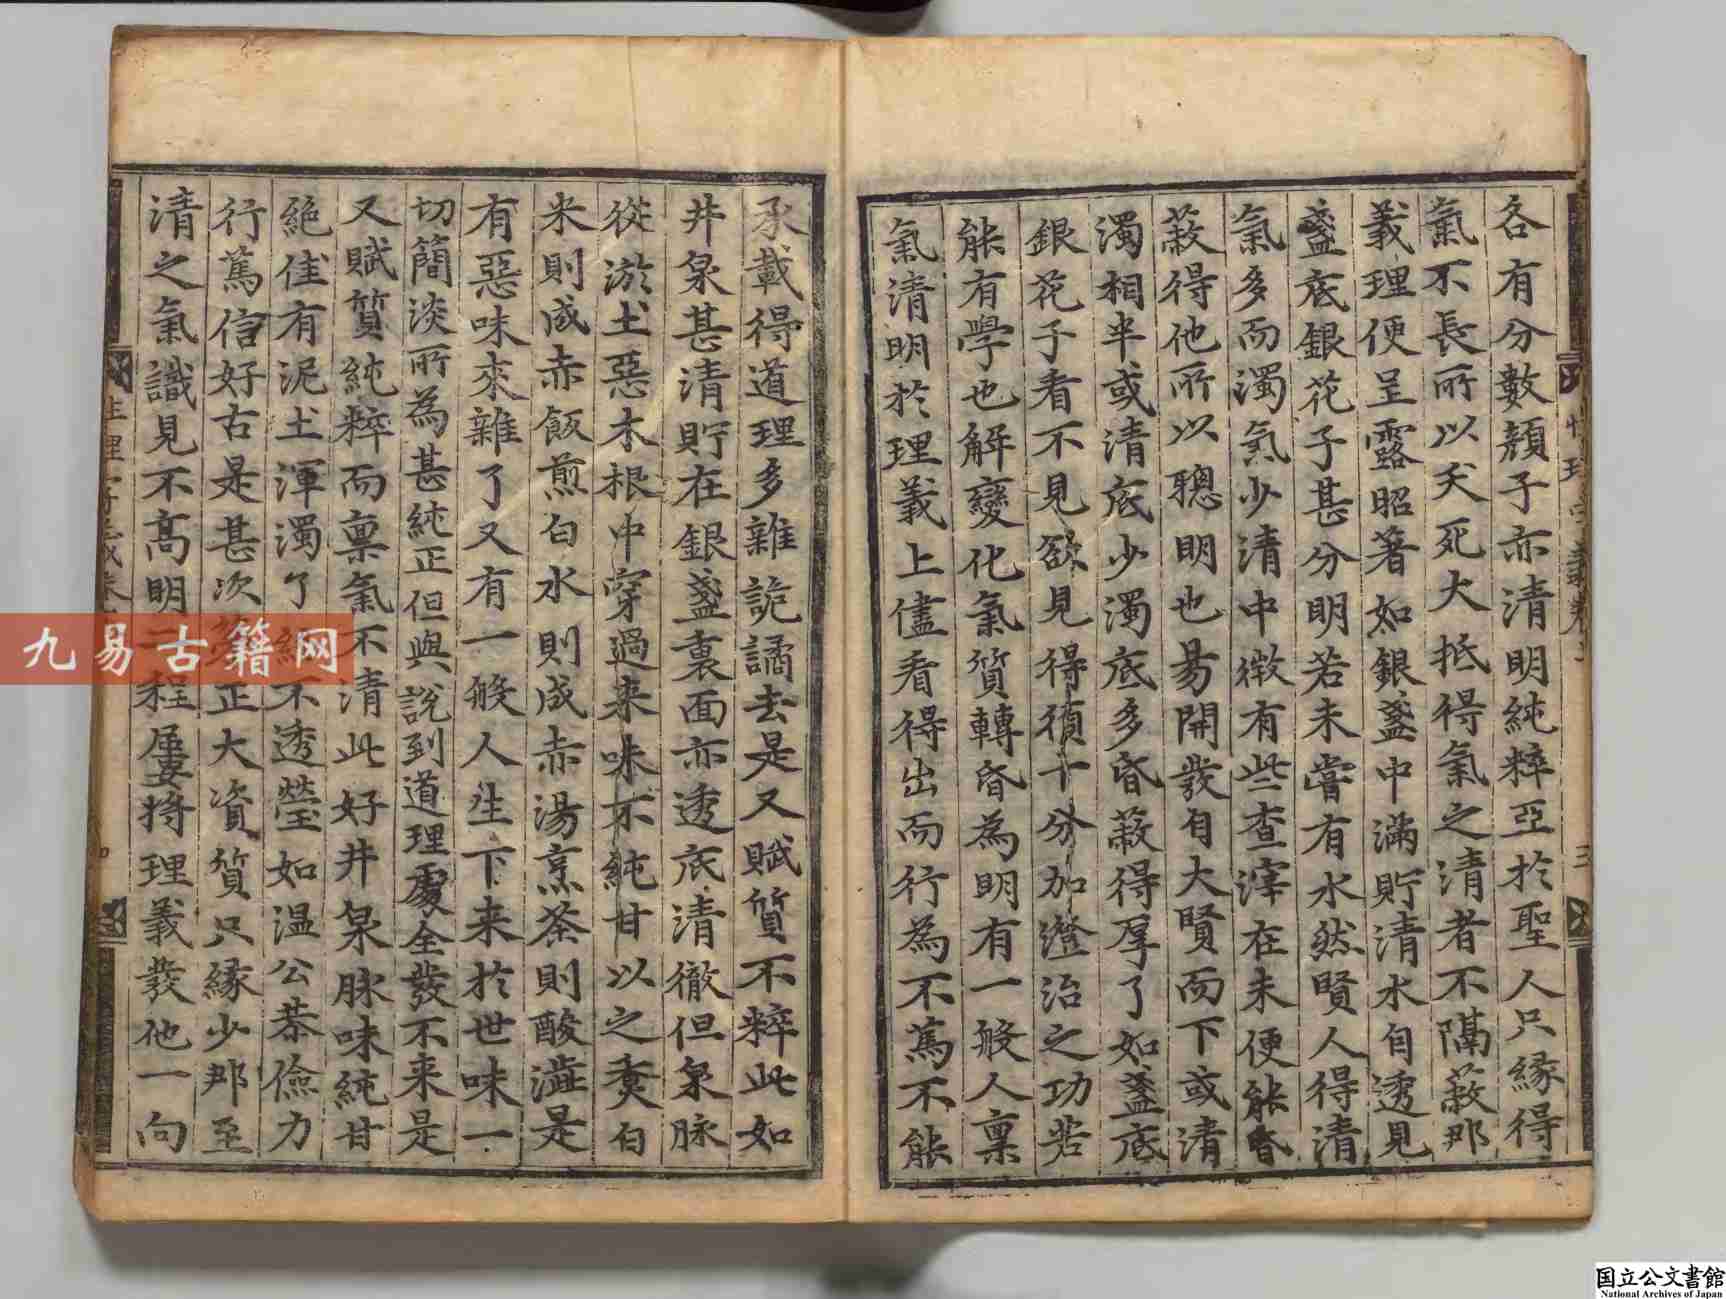 各有分數顔子亦清明純粹亞於聖人只緣得
氣不長所以夭死大抵得氣之清者不隔蔽那
義理便呈露昭著如銀盞中滿貯清水自透見
盞底銀花子甚分明若未嘗有水然賢人得清
氣多而濁氣少清中微有些查滓在未便能昏
蔽得他所以聰明也易開發自大賢而下或清
濁相半或清底少濁底多昏蔽得厚了如盞底
銀花子看不見欲見得須十分加澄治之功若
能有學也解變化氣質轉昏為明有一般人稟
氣清明於理義上儘看得出而行為不篤不能
承載得道理多雜詭譎去是又賦質不粹此如
井泉甚清貯在銀盞裏面亦透底清徹但泉脉
從淤土惡木根中穿過来味不純甘以之煮白
米則成赤飯煎白水則成赤湯烹茶則酸澁是
有惡味來雜了又有一般人生下来於世味一
切簡淡所為甚純正但與說到道理處全發不来是
又賦質純粹而稟氣不清此好井泉脉味純甘
絶佳有泥土渾濁了終不透瑩如温公恭儉力
行篤信好古是甚次第正大資質只緣少那至
清之氣識見不高明二程屢將理義發他一向
性理字義卷 三
性理字義卷
九易古籍网
国立公文書館
National Archives of Japan